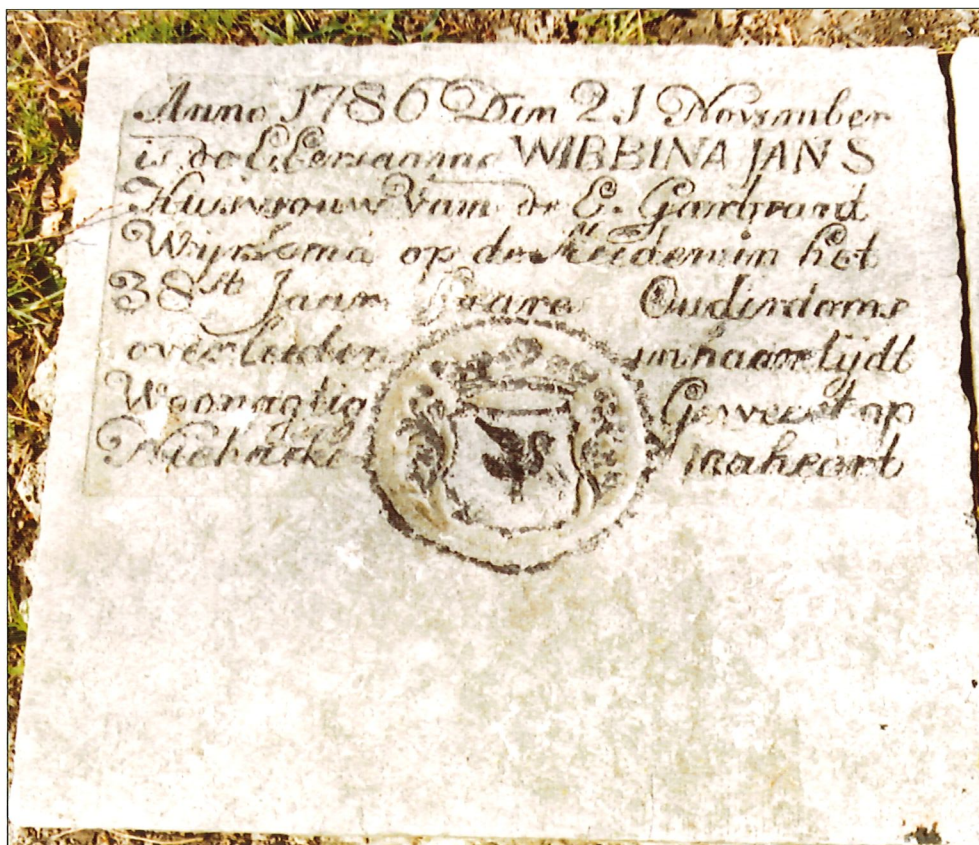 Anno 1786 Den 21 November
is de E. Eersaame WIBBINA JANS
Huisvrouw Van de E. Garbrand
op de Meeden in het
38 st Jaar Haares Ouderdoms
overleeden in haar tijdt
Woonagtig Geweest op